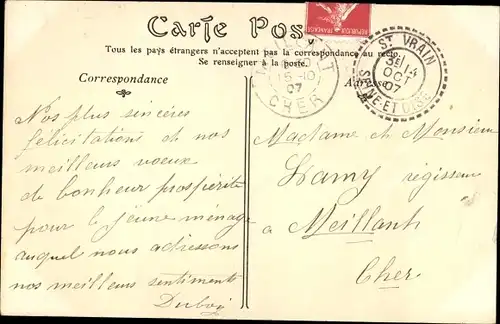 Carte Pos
RÉPUBLIQUE FRANÇAISE
Tous les pays étrangers n'acceptent pas la correspondance au recto
Se renseigner à la poste.
Correspondance
Adresse
15-10
07
CHER
ST VRAIN
3E 14
OCT
07
SEINE-ET-OISE
Nos plus sincères
félicitations et nos
meilleurs voeux
de bonheur prospérité
pour le jeune ménage
auquel nous adressons
nos meilleurs sentiments
Madame et Monsieur
Lamy régisseur
à Meillant
Cher.